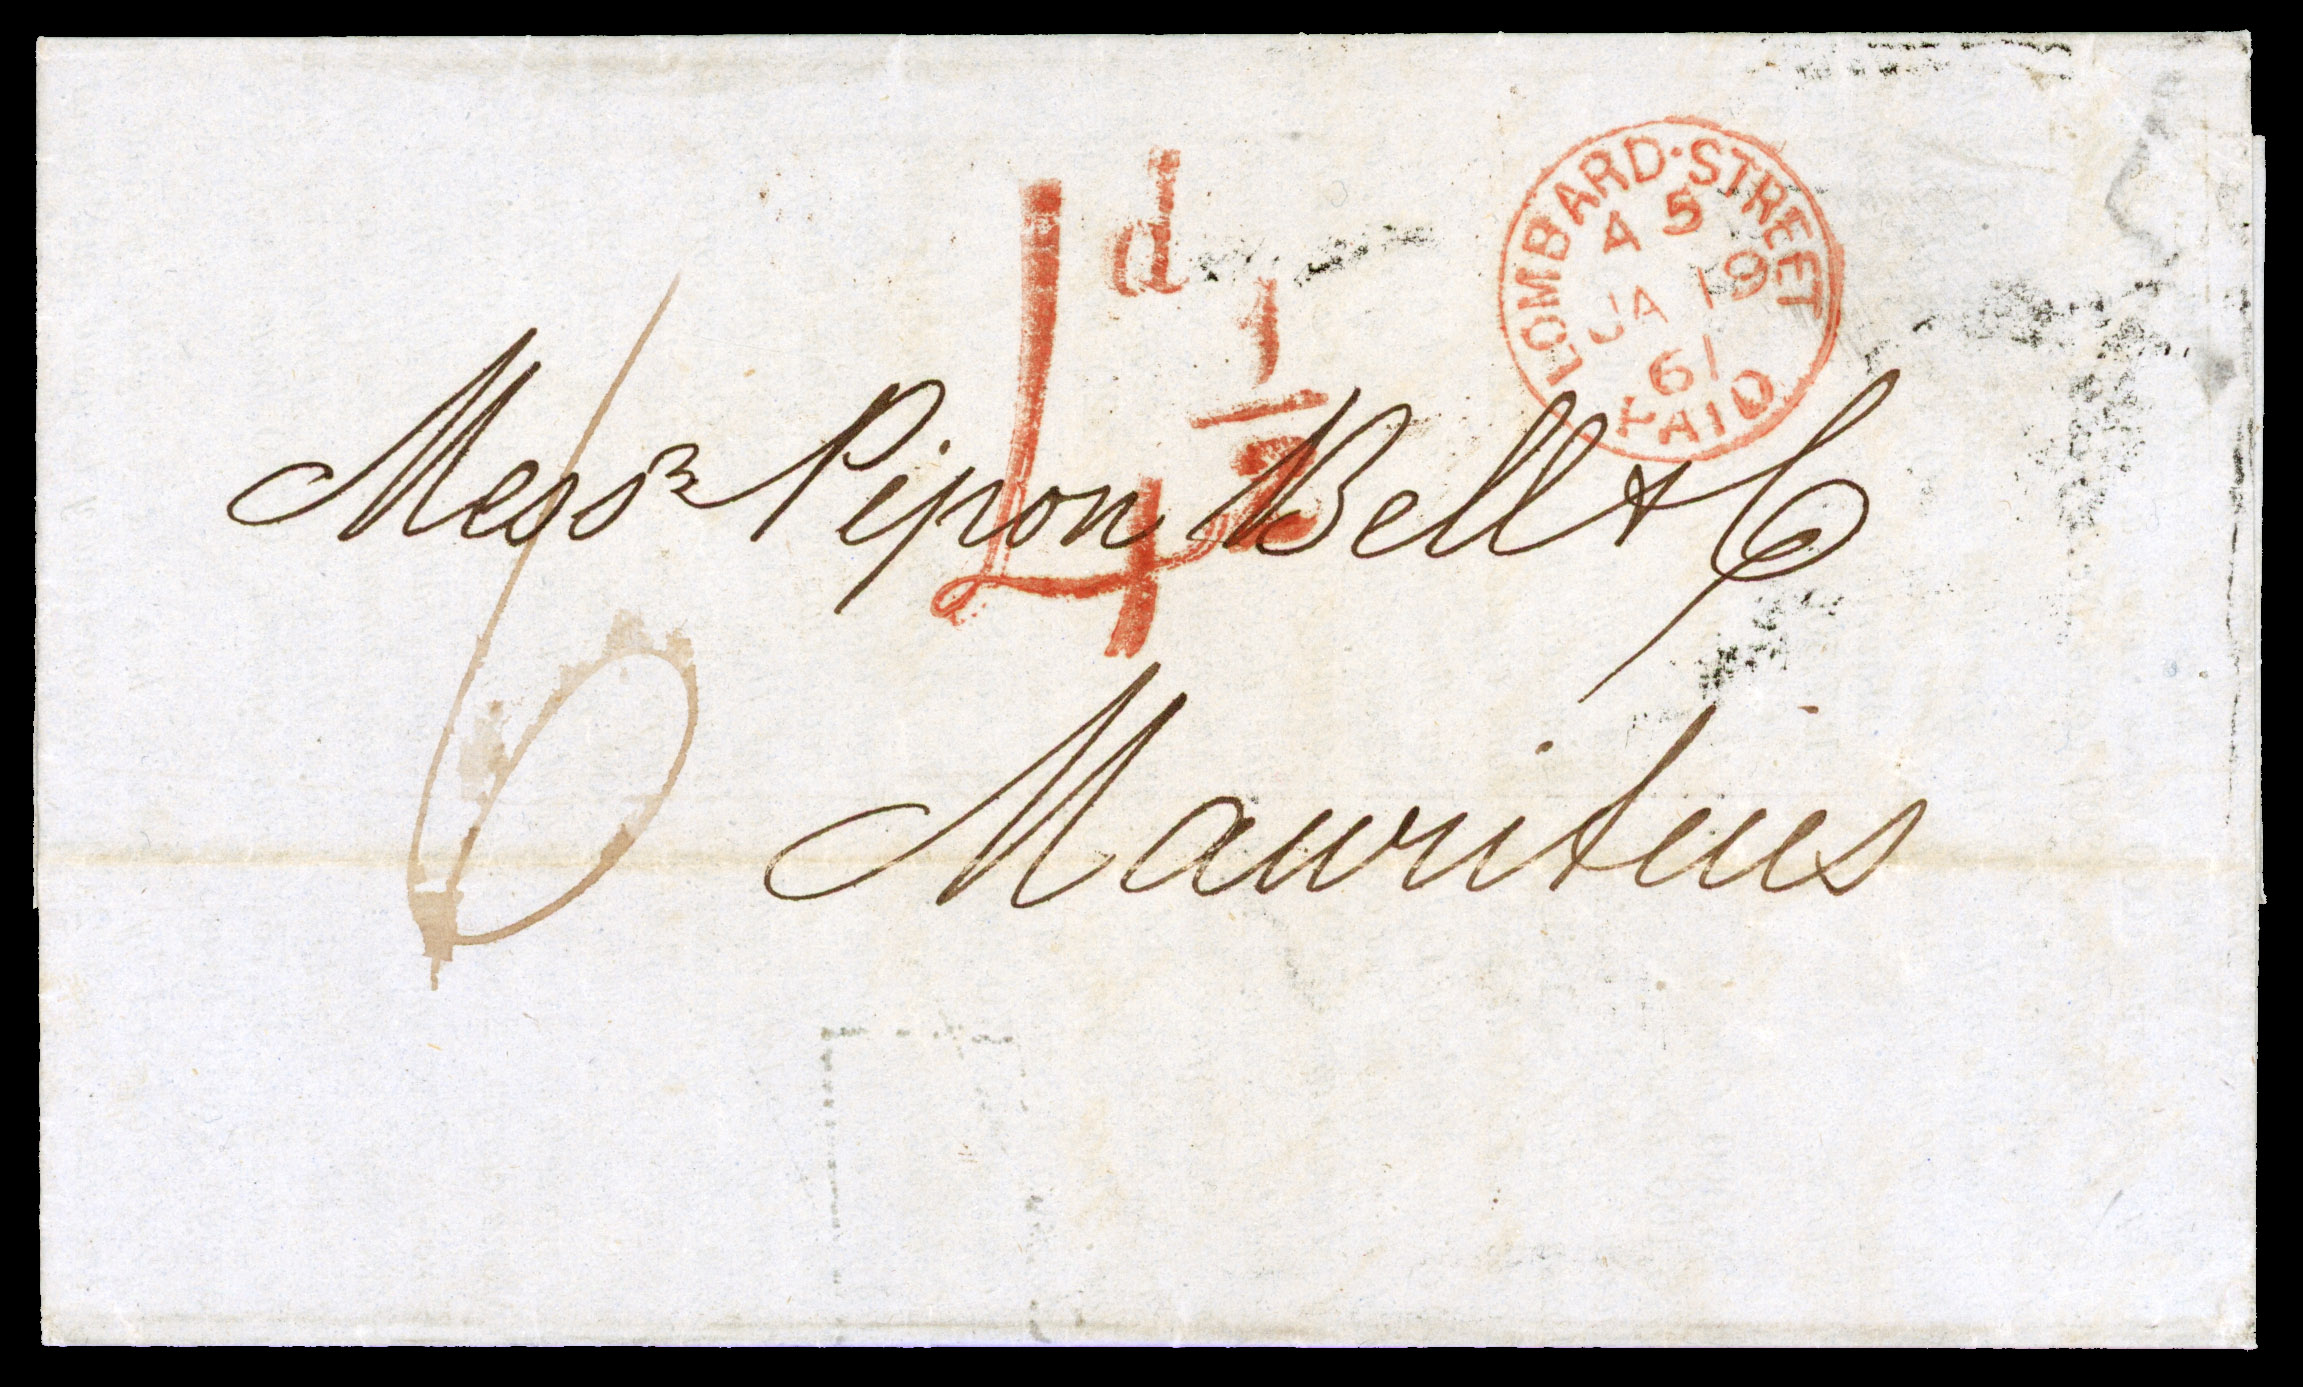 LOMBARD·STREET
A 5
JA 19
61
PAID
4d 1/2
6
Messrs Pipon Bell & Co
Mauritius